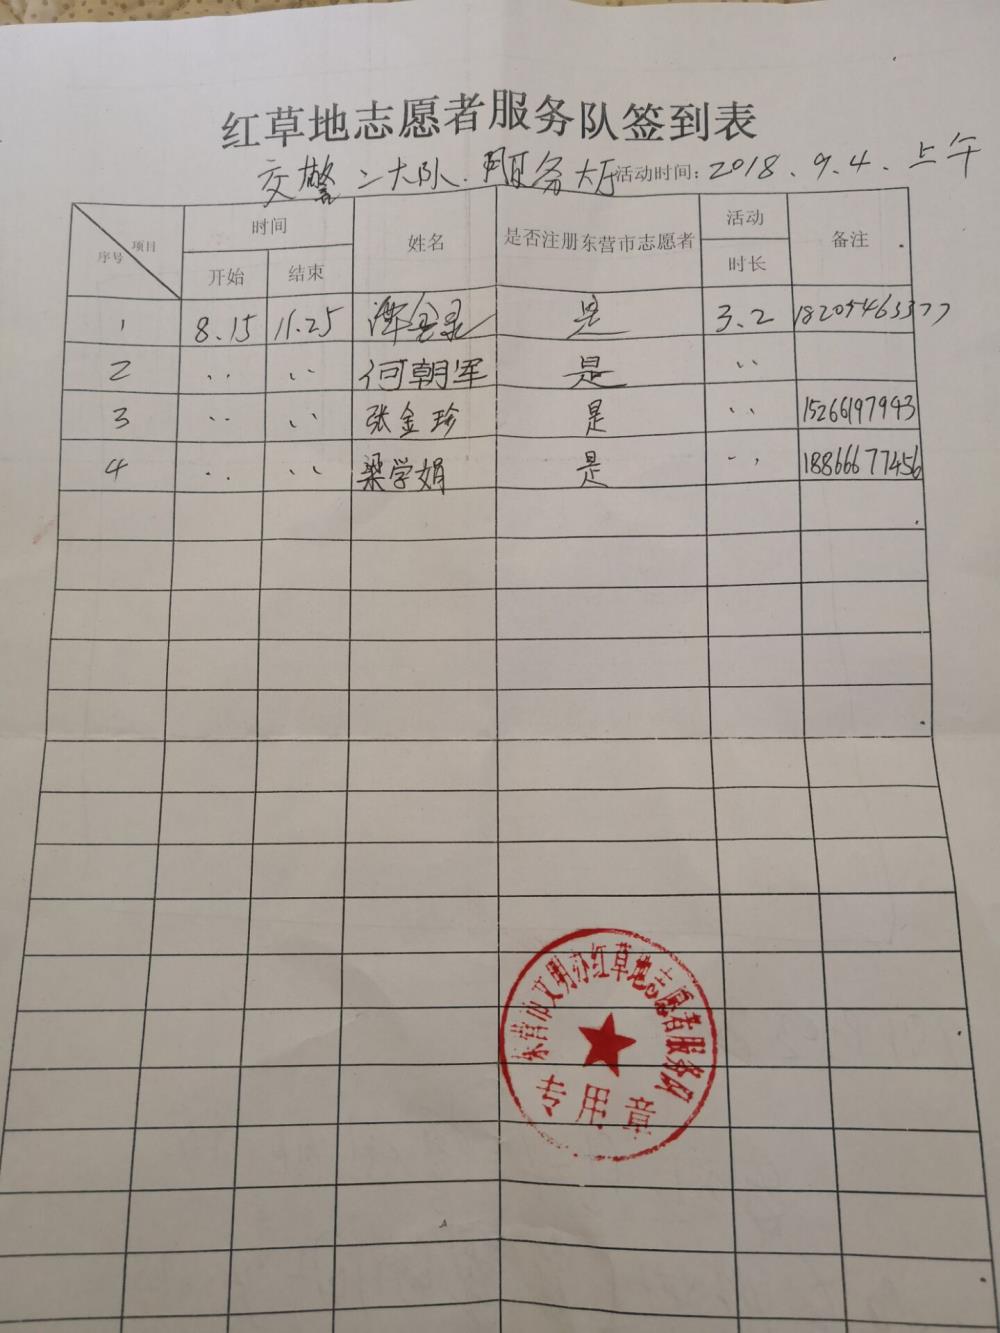 红草地志愿者服务队签到表
交警二大队.服务大厅 活动时间:2018.9.4.上午
项目 时间 姓名 是否注册东营市志愿者 活动 备注
序号 开始 结束 时长
1 8.15 11.25 是 3.2
2 ‥ ‥ 何朝军 是 ‥
3 ‥ ‥ 张金珍 是 ‥ 15266197943
4 ‥ ‥ 梁学娟 是 ‥ 18866677456
东营市文明办红草地志愿者服务队
专用章